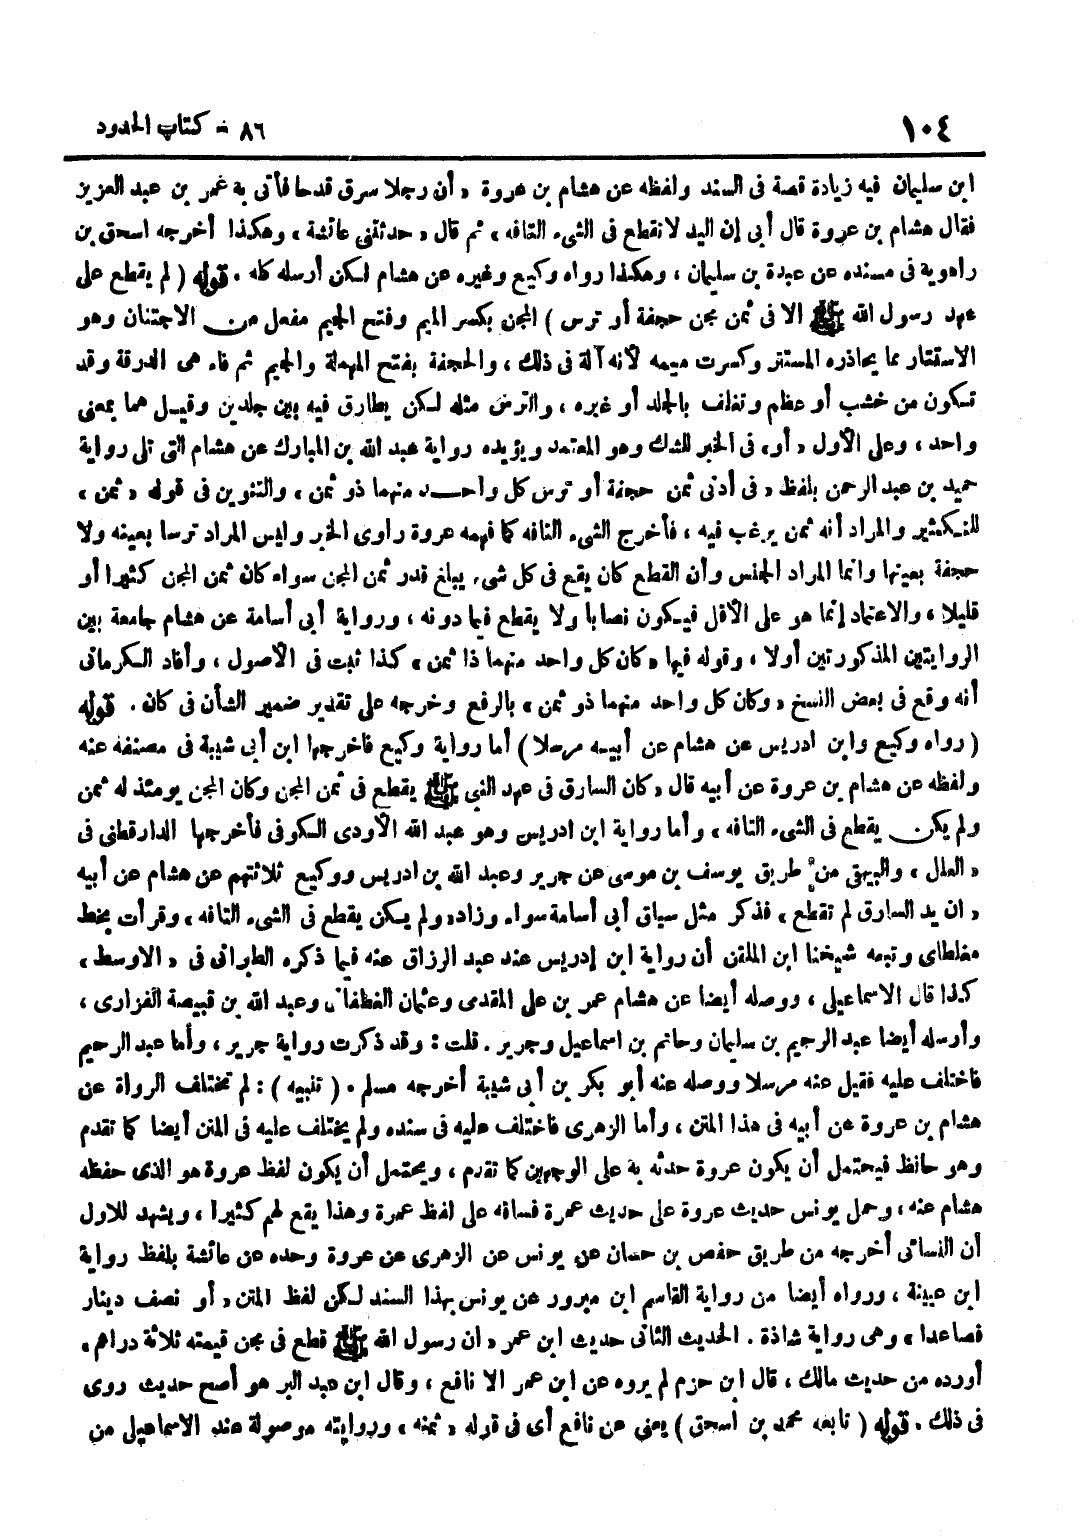 ١٠٤ ٨٦ - كتاب الحدود
ابن سليمان فيه زيادة قصة فى السند ولفظه عن هشام بن عروة « أن رجلا سرق قدحا فأتى به عمر بن عبد العزيز
فقال هشام بن عروة قال أبى إن اليد لا تقطع فى الشىء التافه » ثم قال « حدثتنى عائشة » وهكذا أخرجه اسحق بن
راهوية فى مسنده عن عبدة بن سليمان ، وهكذا رواه وكيع وغيره عن هشام لكن أرسله كله . قوله ( لم يقطع على
عهد رسول الله ﷺ الا فى ثمن مجن حجفة أو ترس ) المجن بكسر الميم وفتح الجيم مفعل من الاجتنان وهو
الاستتار مما يحاذره المستتر وكسرت ميمه لأنه آلة فى ذلك ، والحجفة بفتح المهملة والجيم ثم فاء هى الدرقة وقد
تكون من خشب أو عظم وتغلف بالجلد أو غيره ، والترس مثله لكن يطارق فيه بين جلدين وقيل هما بمعنى
واحد ، وعلى الأول « أو » فى الخبر للشك وهو المعتمد ويؤيده رواية عبد الله بن المبارك عن هشام التى تلى رواية
حميد بن عبد الرحمن بلفظ « فى أدنى ثمن حجفة أو ترس كل واحد منهما ذو ثمن » والتنوين فى قوله « ثمن »
للتكثير والمراد أنه ثمن يرغب فيه ، فأخرج الشىء التافه كما فهمه عروة راوى الخبر وليس المراد ترسا بعينه ولا
حجفة بعينها وانما المراد الجنس وأن القطع كان يقع فى كل شىء يبلغ قدر ثمن المجن سواء كان ثمن المجن كثيرا أو
قليلا ، والاعتماد إنما هو على الأقل فيكون نصابا ولا يقطع فيما دونه ، ورواية أبى أسامة عن هشام جامعة بين
الروايتين المذكورتين أولا ، وقوله فيها « كان كل واحد منهما ذا ثمن » كذا ثبت فى الأصول ، وأفاد الكرمانى
أنه وقع فى بعض النسخ « وكان كل واحد منهما ذو ثمن » بالرفع وخرجه على تقدير ضمير الشأن فى كان . قوله
( رواه وكيع وابن ادريس عن هشام عن أبيه مرسلا ) أما رواية وكيع فاخرجها ابن أبى شيبة فى مصنفه عنه
ولفظه عن هشام بن عروة عن أبيه قال « كان السارق فى عهد النبى ﷺ يقطع فى ثمن المجن وكان المجن يومئذ له ثمن
ولم يكن يقطع فى الشىء التافه » وأما رواية ابن ادريس وهو عبد الله الأودى الكوفى فأخرجها الدارقطنى فى
« العلل » والبيهقى من طريق يوسف بن موسى عن جرير وعبد الله بن ادريس ووكيع ثلاثتهم عن هشام عن أبيه
« ان يد السارق لم تقطع » فذكر مثل سياق أبى أسامة سواء وزاد « ولم يكن يقطع فى الشىء التافه » وقرأت بخط
مغلطاى وتبعه شيخنا ابن الملقن أن رواية ابن إدريس عند عبد الرزاق عنه فيما ذكره الطبرانى فى « الاوسط »
كذا قال الاسماعيلى ، ووصله أيضا عن هشام عمر بن على المقدمى وعثمان الغطفانى وعبد الله بن قبيصة الفزارى ،
وأرسله أيضا عبد الرحيم بن سليمان وحاتم بن اسماعيل وجرير . قلت : وقد ذكرت رواية جرير ، وأما عبد الرحيم
فاختلف عليه فقيل عنه مرسلا ووصله عنه أبو بكر بن أبى شيبة أخرجه مسلم . ( تنبيه ) : لم تختلف الرواة عن
هشام بن عروة عن أبيه فى هذا المتن ، وأما الزهرى فاختلف عليه فى سنده ولم يختلف عليه فى المتن أيضا كما تقدم
وهو حافظ فيحتمل أن يكون عروة حدثه به على الوجهين كما تقدم ، ويحتمل أن يكون لفظ عروة هو الذى حفظه
هشام عنه ، وحمل يونس حديث عروة على حديث عمرة فساقه على لفظ عمرة وهذا يقع لهم كثيرا ، ويشهد للاول
أن النسائى أخرجه من طريق حفص بن حسان عن يونس عن الزهرى عن عروة وحده عن عائشة بلفظ رواية
ابن عيينة ، ورواه أيضا من رواية القاسم ابن مبرور عن يونس بهذا السند لكن لفظ المتن « أو نصف دينار
فصاعدا » وهى رواية شاذة . الحديث الثانى حديث ابن عمر « ان رسول الله ﷺ قطع فى مجن قيمته ثلاثة دراهم »
أورده من حديث مالك ، قال ابن حزم لم يروه عن ابن عمر الا نافع ، وقال ابن عبد البر هو أصح حديث روى
فى ذلك . قوله ( تابعه محمد بن اسحق ) يعنى عن نافع أى فى قوله « ثمنه » وروايته موصولة عند الاسماعيلى من